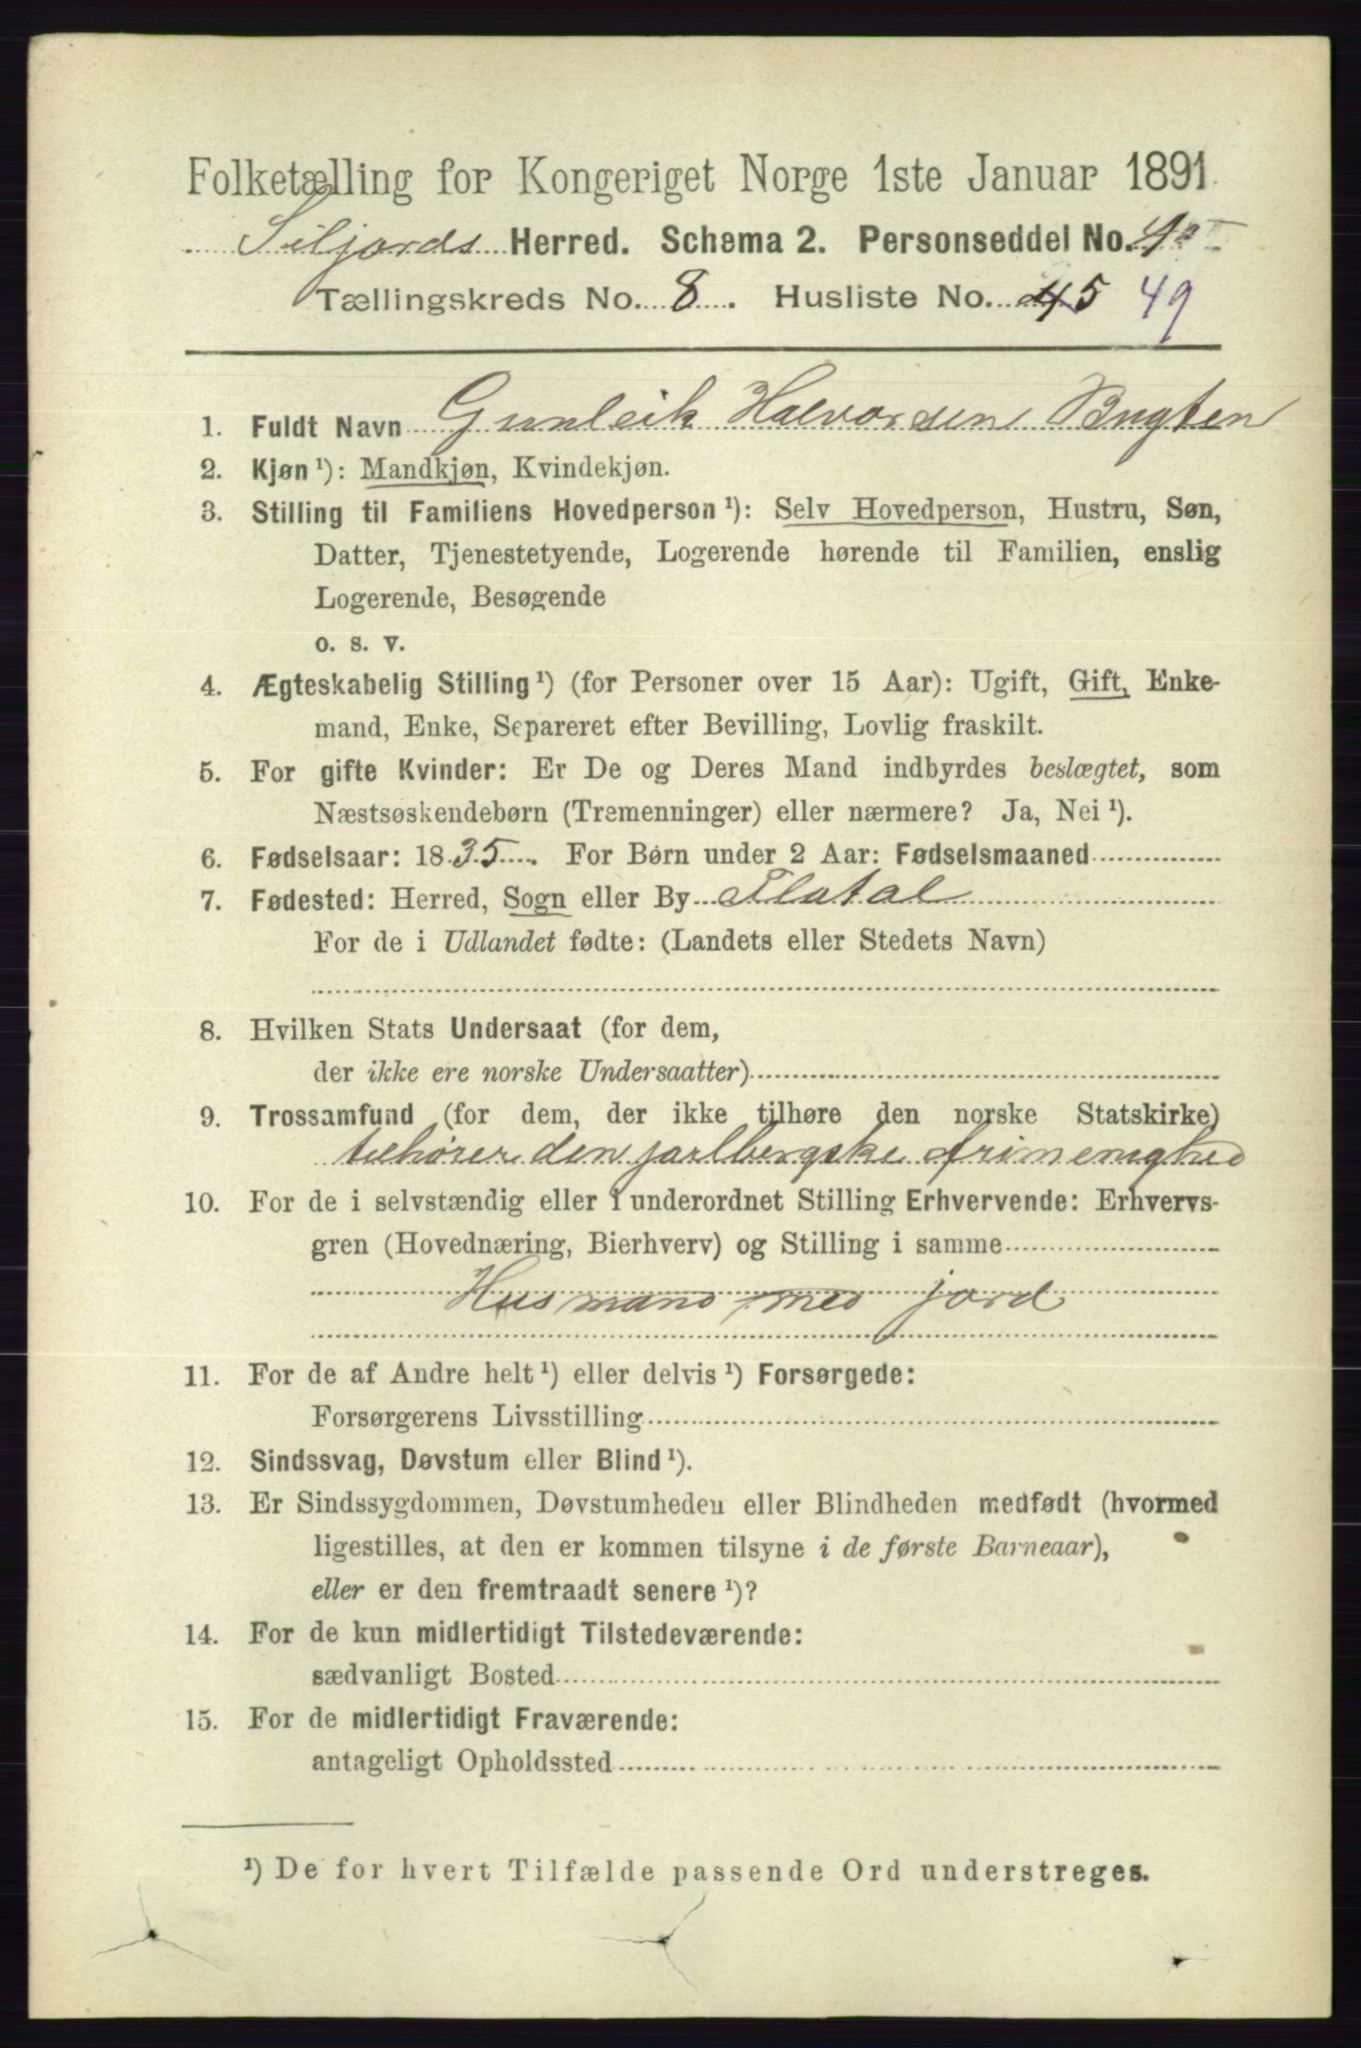 Folketælling for Kongeriget Norge 1ste Januar 1891.
Siljords Herred. Schema 2. Personseddel No. 1
Tællingskreds No. 8. Husliste No. 45 49
1. Fuldt Navn Gunleik Halvorsen Bugten
2. Kjøn ¹): Mandkjøn, Kvindekjøn.
3. Stilling til Familiens Hovedperson ¹): Selv Hovedperson, Hustru, Søn,
Datter, Tjenestetyende, Logerende hørende til Familien, enslig
Logerende, Besøgende
o. s. v.
4. Ægteskabelig Stilling ¹) (for Personer over 15 Aar): Ugift, Gift, Enke-
mand, Enke, Separeret efter Bevilling, Lovlig fraskilt.
5. For gifte Kvinder: Er De og Deres Mand indbyrdes beslægtet, som
Næstsøskendebørn (Tremenninger) eller nærmere? Ja, Nei ¹).
6. Fødselsaar: 1835. For Børn under 2 Aar: Fødselsmaaned
7. Fødested: Herred, Sogn eller By Flatdal
For de i Udlandet fødte: (Landets eller Stedets Navn)
8. Hvilken Stats Undersaat (for dem,
der ikke ere norske Undersaatter)
9. Trossamfund (for dem, der ikke tilhøre den norske Statskirke)
tilhører den jarlbergske frimenighed
10. For de i selvstændig eller i underordnet Stilling Erhvervende: Erhvervs-
gren (Hovednæring, Bierhverv) og Stilling i samme
Husmand med jord
11. For de af Andre helt ¹) eller delvis ¹) Forsørgede:
Forsørgerens Livsstilling
12. Sindssvag, Døvstum eller Blind ¹).
13. Er Sindssygdommen, Døvstumheden eller Blindheden medfødt (hvormed
ligestilles, at den er kommen tilsyne i de første Barneaar),
eller er den fremtraadt senere ¹)?
14. For de kun midlertidigt Tilstedeværende:
sædvanligt Bosted
15. For de midlertidigt Fraværende:
antageligt Opholdssted
¹) De for hvert Tilfælde passende Ord understreges.